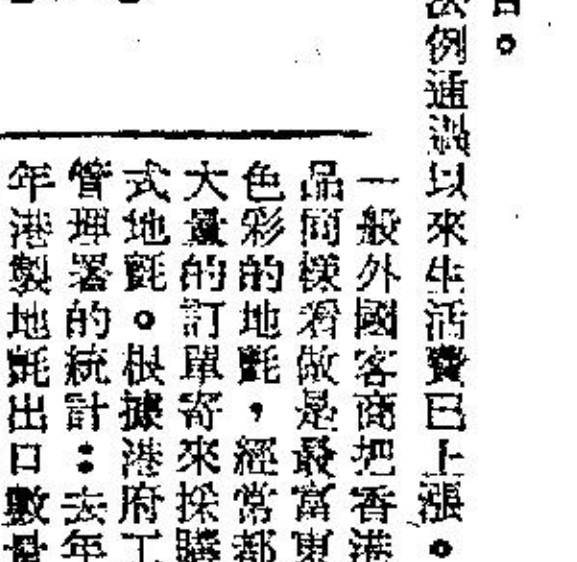 。
例通過以來生活費已上漲。
一般外國客商把香港
品同樣看做是最富東
色彩的地氈，經常都
大量的訂單寄來採購
式地氈。根據港府工
管理署的統計：去年
年港製地氈出口數量